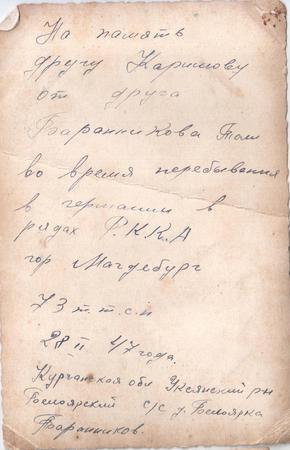 На память
другу Каримову
от друга
Баранникова Толи
во время перебывания
в германии в
рядах Р.К.К.А
гор Магдебург
73 т.т.с.п
28 II 47 года.
Курганская обл Уксянский рн
с/с д.
Баранников.